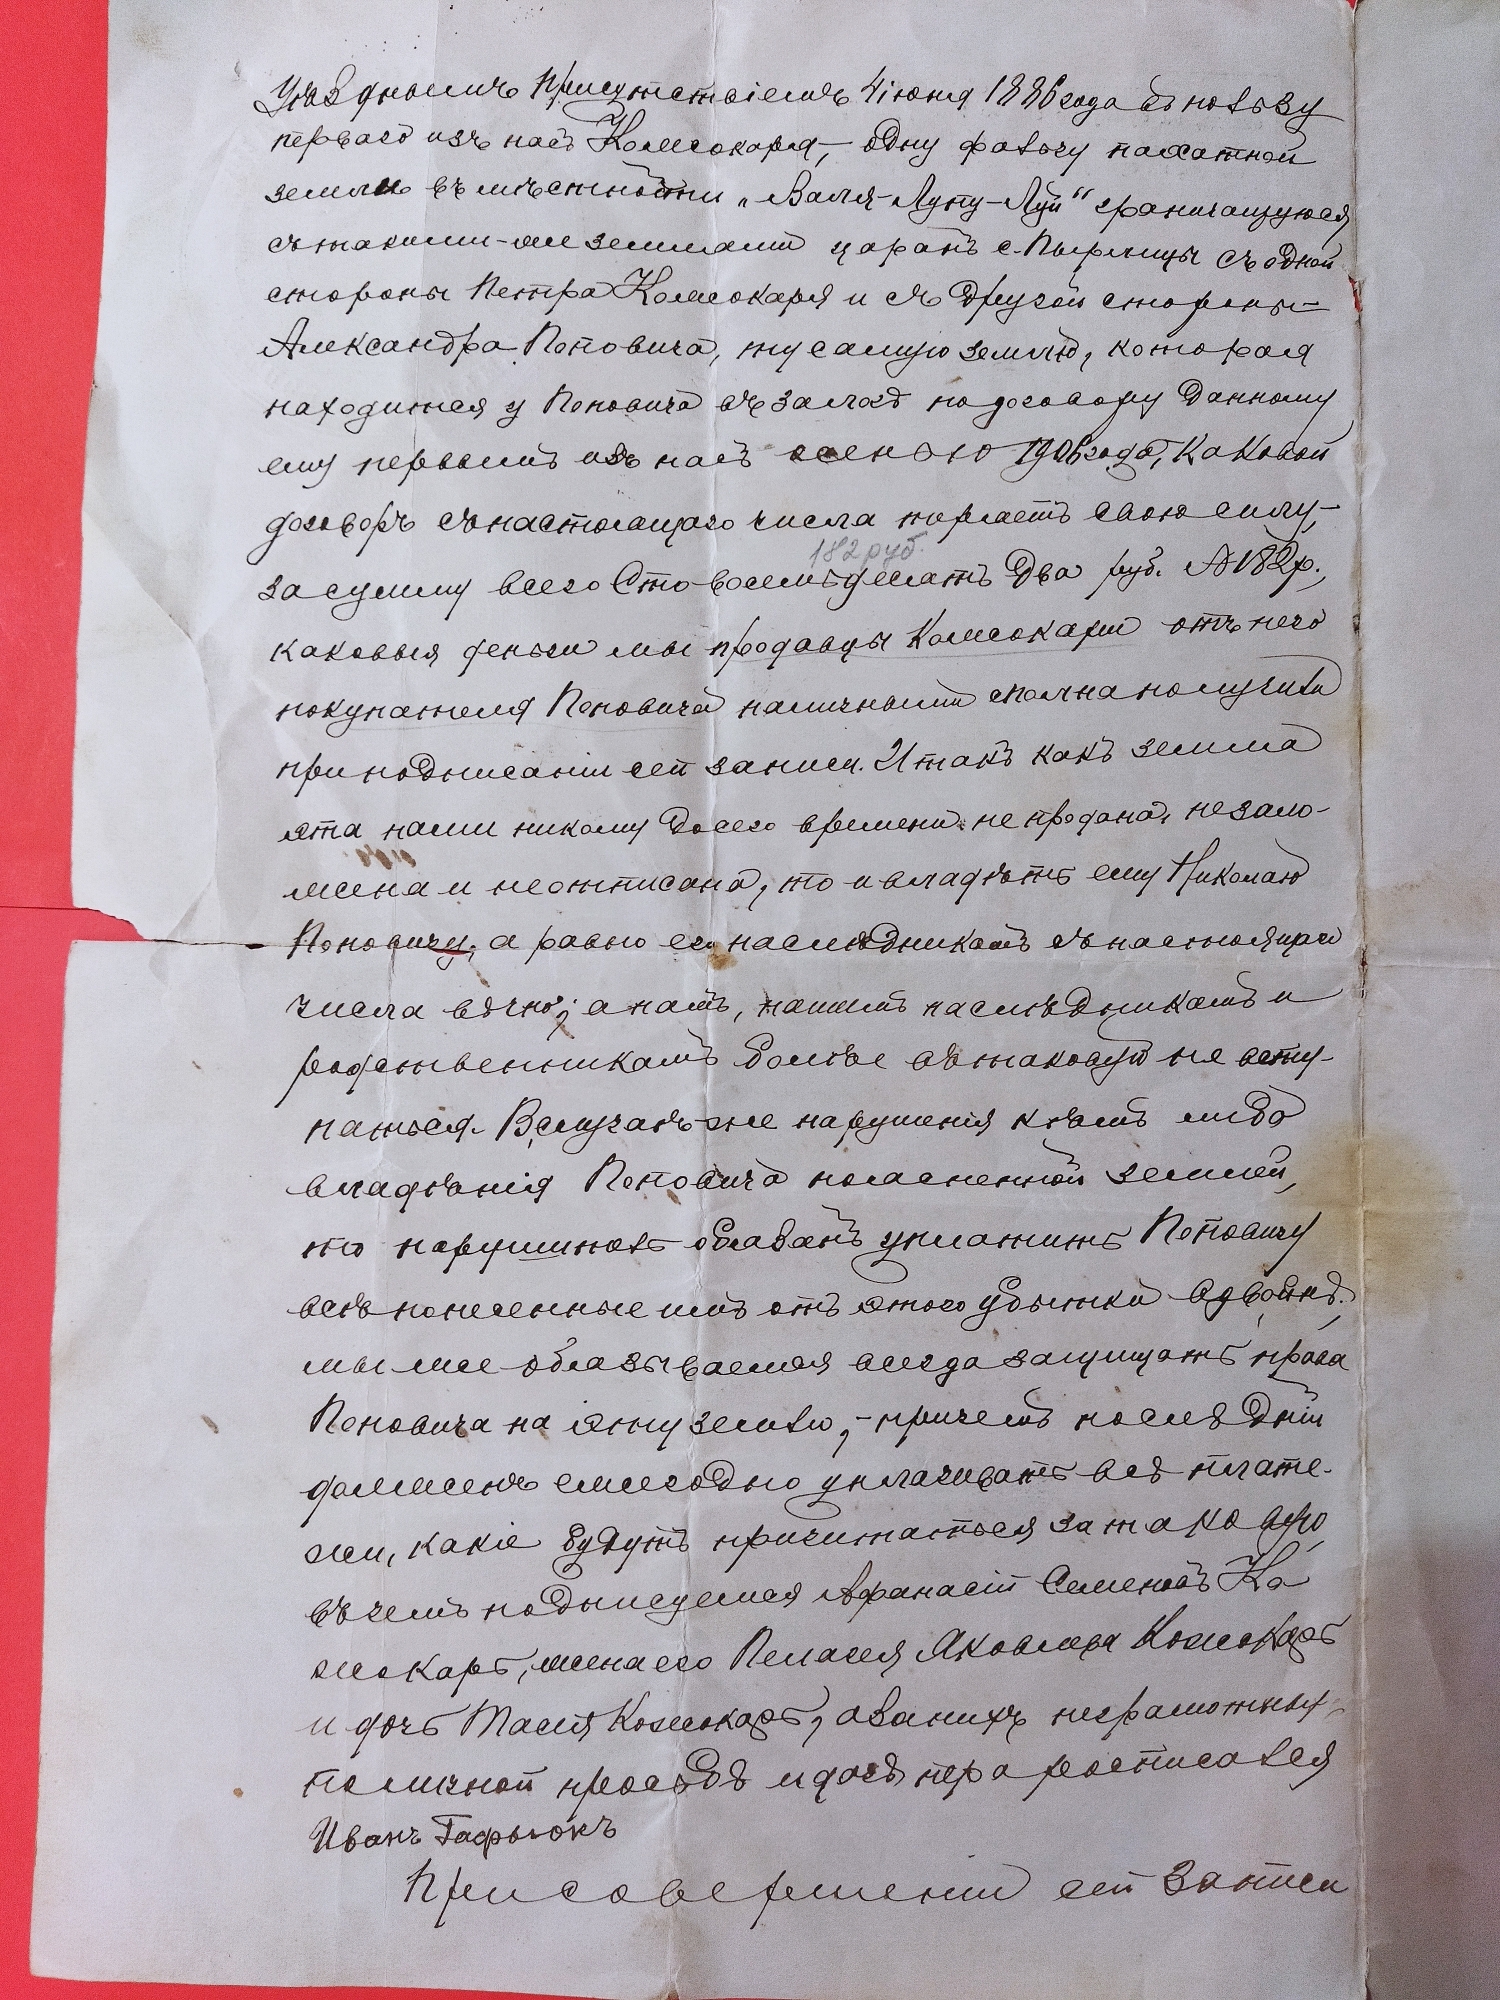 Уѣзднымъ Присутствіемъ 4 іюня 1886 года въ пользу
перваго изъ насъ Кожокаря, – одну фальчу пахатной
земли въ мѣстности „Валя-Лупу-Луй" граничащуюся
съ такими-же землями царанъ с. Пырлицы съ одной
стороны Петра Кожокаря и съ другой стороны –
Александра Поповича, ту самую землю, которая
находится у Поповича въ залогѣ по договору данному
ему первымъ изъ насъ осенью 1906 года, каковой
договоръ съ настоящаго числа теряетъ свою силу, –
182 руб.
за сумму всего Сто восемьдесятъ два руб. № 182 р.,
каковыя деньги мы продавцы Кожокари отъ него
покупателя Поповича наличными сполна получили
при подписаніи сей записи. И такъ какъ земля
эта нами никому до сего времени не продана, не зало-
жена и не отписана, то и владѣть ему Николаю
Поповичу, а равно его наслѣдникамъ съ настоящаго
числа вѣчно; а намъ, нашимъ наслѣдникамъ и
родственникамъ болѣе въ таковую не всту-
паться. В случаѣ-же нарушенія кѣмъ либо
владѣнія Поповича поясненной землей,
то нарушитель обязанъ уплатить Поповичу
всѣ понесенные имъ отъ этого убытки вдвойнѣ,
мы же обязываемся всегда защищать права
Поповича на эту землю, – причемъ послѣдній
долженъ ежегодно уплачивать всѣ плате-
жи, какіе будутъ причитаться за таковую,
въ чемъ подписуемся Афанасій Семеновъ Ко
жокарь, жена его Пелагея Яковлева Кожокарь
и дочь Тасія Кожокарь, а за нихъ неграмотных
по личной просьбѣ и дачѣ пера росписался
Иванъ Гафьюкъ
При совершеніи сей записи